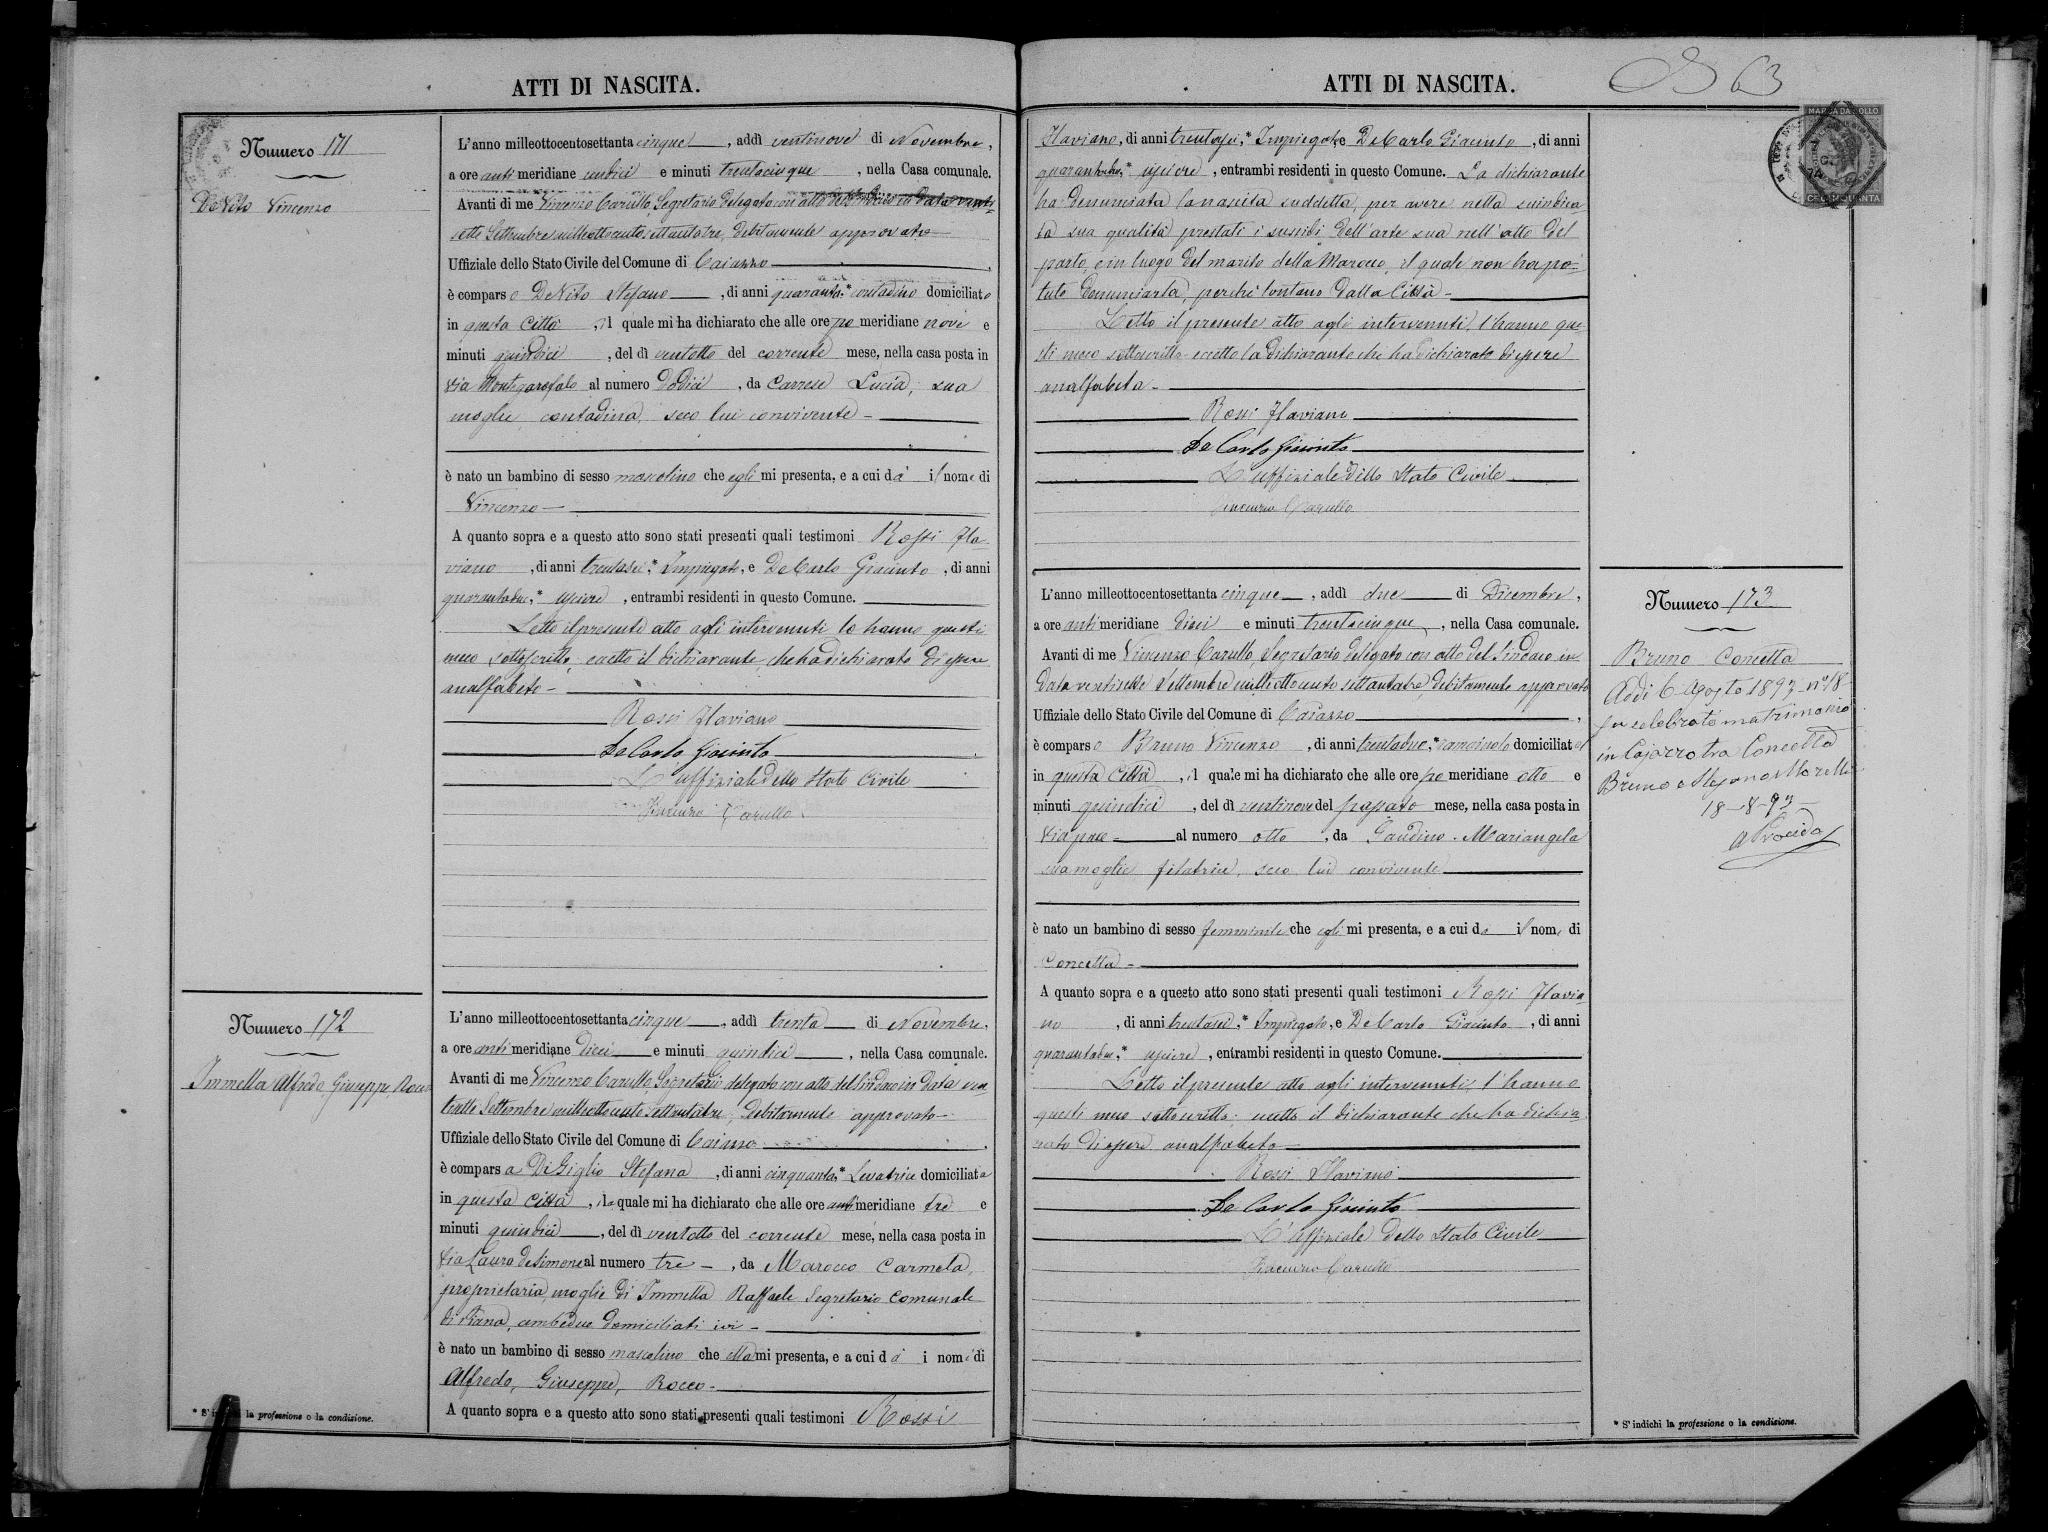 ATTI DI NASCITA.
Numero 171
De Vito Vincenzo
L'anno milleottocentosettanta cinque, addì ventinove di Novembre,
a ore anti meridiane undici e minuti trentacinque, nella Casa comunale.
Avanti di me Vincenzo Carullo, Segretario delegato con atto del Sindaco in data venti
sette Settembre milleottocento settantatre, debitamente approvato
Uffiziale dello Stato Civile del Comune di Caiazzo
è comparso De Vito Stefano, di anni quaranta,* contadino domiciliato
in questa Città, il quale mi ha dichiarato che alle ore po meridiane nove e
minuti quindici, del dì ventotto del corrente mese, nella casa posta in
via Montegarofalo al numero dodici, da Carrese Lucia, sua
moglie, contadina, seco lui convivente
è nato un bambino di sesso mascolino che egli mi presenta, e a cui dà il nome di
Vincenzo
A quanto sopra e a questo atto sono stati presenti quali testimoni Rossi Fla-
viano, di anni trentasei,* Impiegato, e De Carlo Giacinto, di anni
quarantadue,* usciere, entrambi residenti in questo Comune.
Letto il presente atto agli intervenuti lo hanno questi
meco sottoscritto, eccetto il dichiarante, che ha dichiarato di essere
analfabeto
Rossi Flaviano
De Carlo Giacinto
L'uffiziale dello Stato Civile
Vincenzo Carullo
Numero 172
Immella Alfredo, Giuseppe, Rocco
L'anno milleottocentosettanta cinque, addì trenta di Novembre,
a ore anti meridiane dieci e minuti quindici, nella Casa comunale.
Avanti di me Vincenzo Carullo Segretario delegato con atto del Sindaco in data ven
tisette Settembre milleottocento settantatre, debitamente approvato
Uffiziale dello Stato Civile del Comune di Caiazzo
è comparsa Di Giglio Stefana, di anni cinquanta,* Levatrice domiciliata
in questa Città, la quale mi ha dichiarato che alle ore anti meridiane tre e
minuti quindici, del dì ventotto del corrente mese, nella casa posta in
via Lauro de Simone al numero tre, da Marocco Carmela,
proprietaria, moglie di Immella Raffaele Segretario Comunale
di Piana, ambedue domiciliati ivi
è nato un bambino di sesso mascolino che ella mi presenta, e a cui dà i nomi di
Alfredo, Giuseppe, Rocco
A quanto sopra e a questo atto sono stati presenti quali testimoni Rossi
* S'indichi la professione o la condizione.
ATTI DI NASCITA.
63
MARCA DA BOLLO
Flaviano, di anni trentasei,* Impiegato, e De Carlo Giacinto, di anni
quarantadue,* usciere, entrambi residenti in questo Comune. La dichiarante
ha denunciata la nascita suddetta, per avere nella suindica-
ta sua qualità prestati i sussidi dell'arte sua nell'atto del
parto, e in luogo del marito della Marocco, il quale non ha po-
tuto denunciarla, perchè lontano dalla Città
Letto il presente atto agli intervenuti, l'hanno que-
sti meco sottoscritto eccetto la dichiarante che ha dichiarato di essere
analfabeta
Rossi Flaviano
De Carlo Giacinto
L'uffiziale dello Stato Civile
Vincenzo Carullo
L'anno milleottocentosettanta cinque, addì due di Dicembre,
a ore anti meridiane dieci e minuti trentacinque, nella Casa comunale.
Avanti di me Vincenzo Carullo, Segretario delegato con atto del Sindaco in
data ventisette Settembre milleottocento settantatre, debitamente approvato
Uffiziale dello Stato Civile del Comune di Caiazzo,
è comparso Bruno Vincenzo, di anni trentadue,* domiciliato
in questa Città, il quale mi ha dichiarato che alle ore po meridiane otto e
minuti quindici, del dì ventinove del passato mese, nella casa posta in
via al numero otto, da Gaudino Mariangela
sua moglie filatrice, seco lui convivente
è nato un bambino di sesso femminile che egli mi presenta, e a cui dà il nome di
Concetta
A quanto sopra e a questo atto sono stati presenti quali testimoni Rossi Flavia
no, di anni trentasei,* Impiegato, e De Carlo Giacinto, di anni
quarantadue,* usciere, entrambi residenti in questo Comune.
Letto il presente atto agli intervenuti, l'hanno
questi meco sottoscritto, eccetto il dichiarante che ha dichia
rato di essere analfabeto
Rossi Flaviano
De Carlo Giacinto
L'Uffiziale dello Stato Civile
Vincenzo Carullo
Numero 173
Bruno Concetta
Addì 6 Agosto 1893 n° 18
fu celebrato matrimonio
in Cajazzo tra Concetta
Bruno e Stefano Morelli
18-8-93
* S'indichi la professione o la condizione.